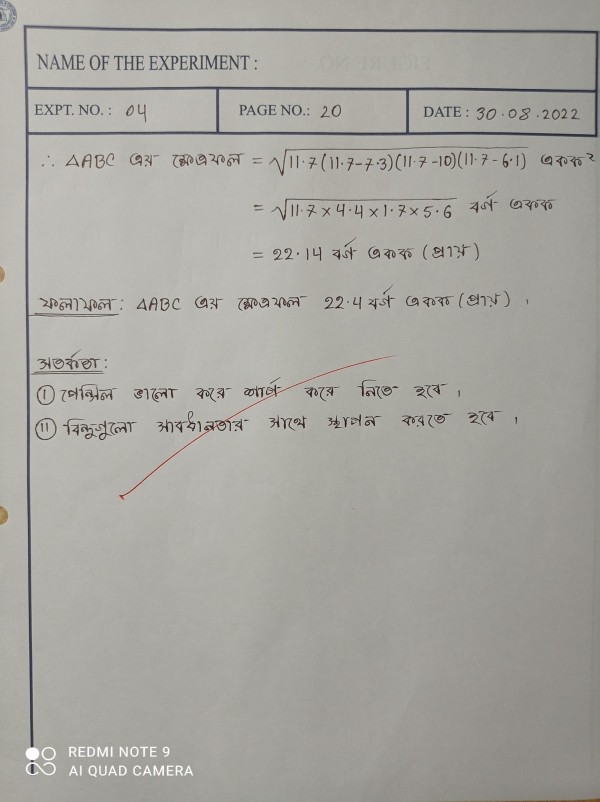 NAME OF THE EXPERIMENT :
EXPT. NO. : 04 PAGE NO.: 20 DATE : 30.08.2022
∴ △ABC এর ক্ষেত্রফল = √11.7(11.7-7.3)(11.7-10)(11.7-6.1) একক²
= √11.7×4.4×1.7×5.6 বর্গ একক
= 22.14 বর্গ একক (প্রায়)
ফলাফল: △ABC এর ক্ষেত্রফল 22.4 বর্গ একক (প্রায়) ।
সতর্কতা:
(I) পেন্সিল ভালো করে শার্প করে নিতে হবে ।
(II) বিন্দুগুলো সাবধানতার সাথে স্থাপন করতে হবে ।
REDMI NOTE 9
AI QUAD CAMERA